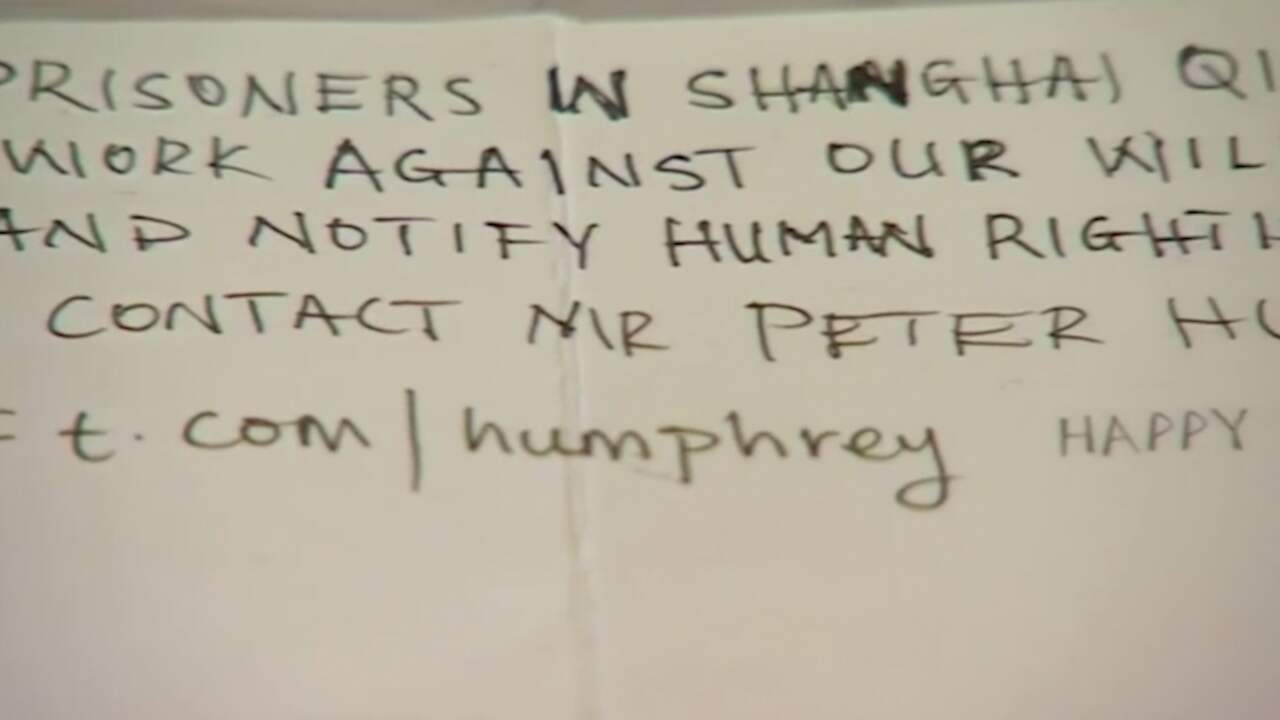 PRISONERS IN SHANGHAI QI
WORK AGAINST OUR WIL
AND NOTIFY HUMAN RIGHT
CONTACT MR PETER HU
t.com/humphrey HAPPY